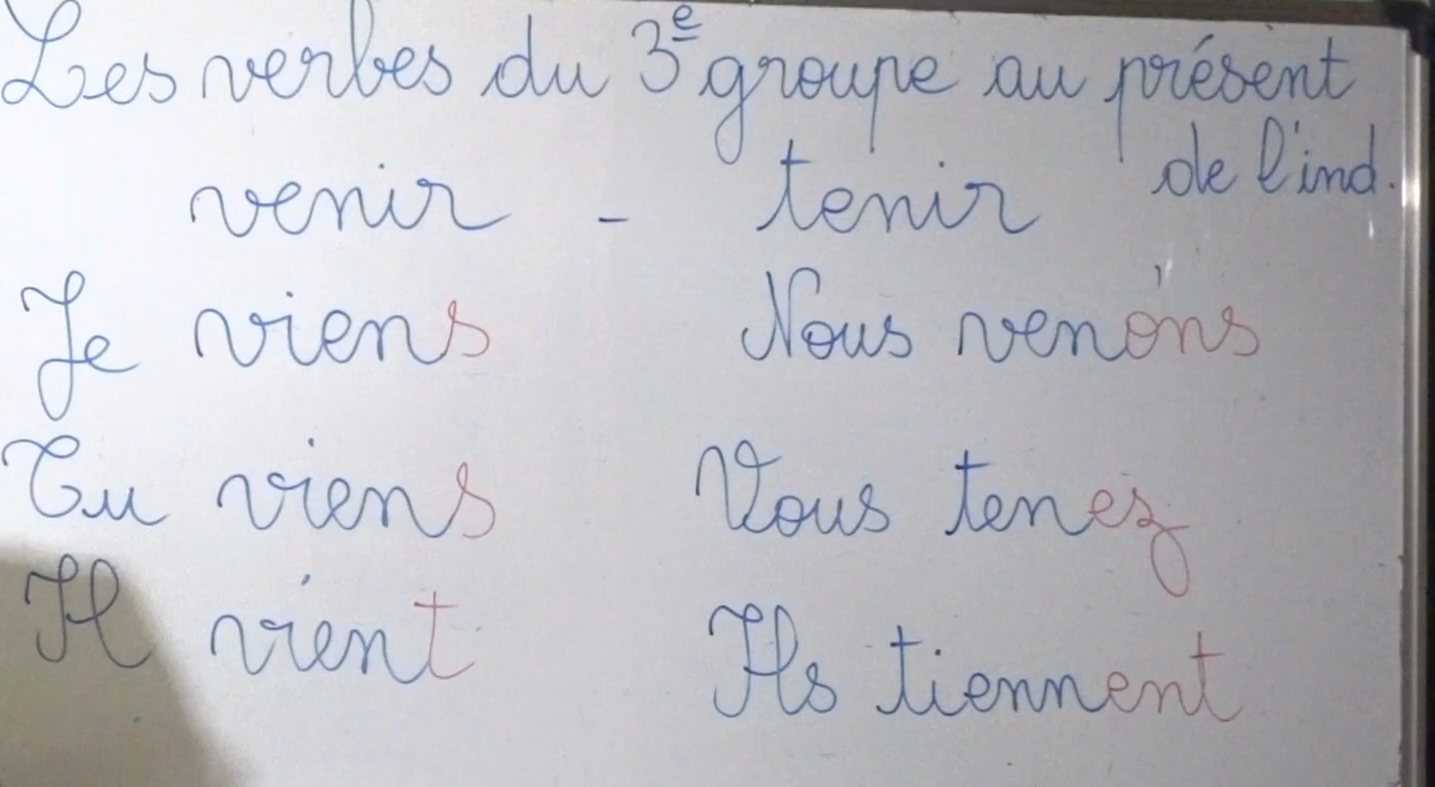 Les verbes du 3e groupe au présent
de l'ind.
venir - tenir
Je viens Nous venons
Tu viens Vous tenez
Il vient Ils tiennent